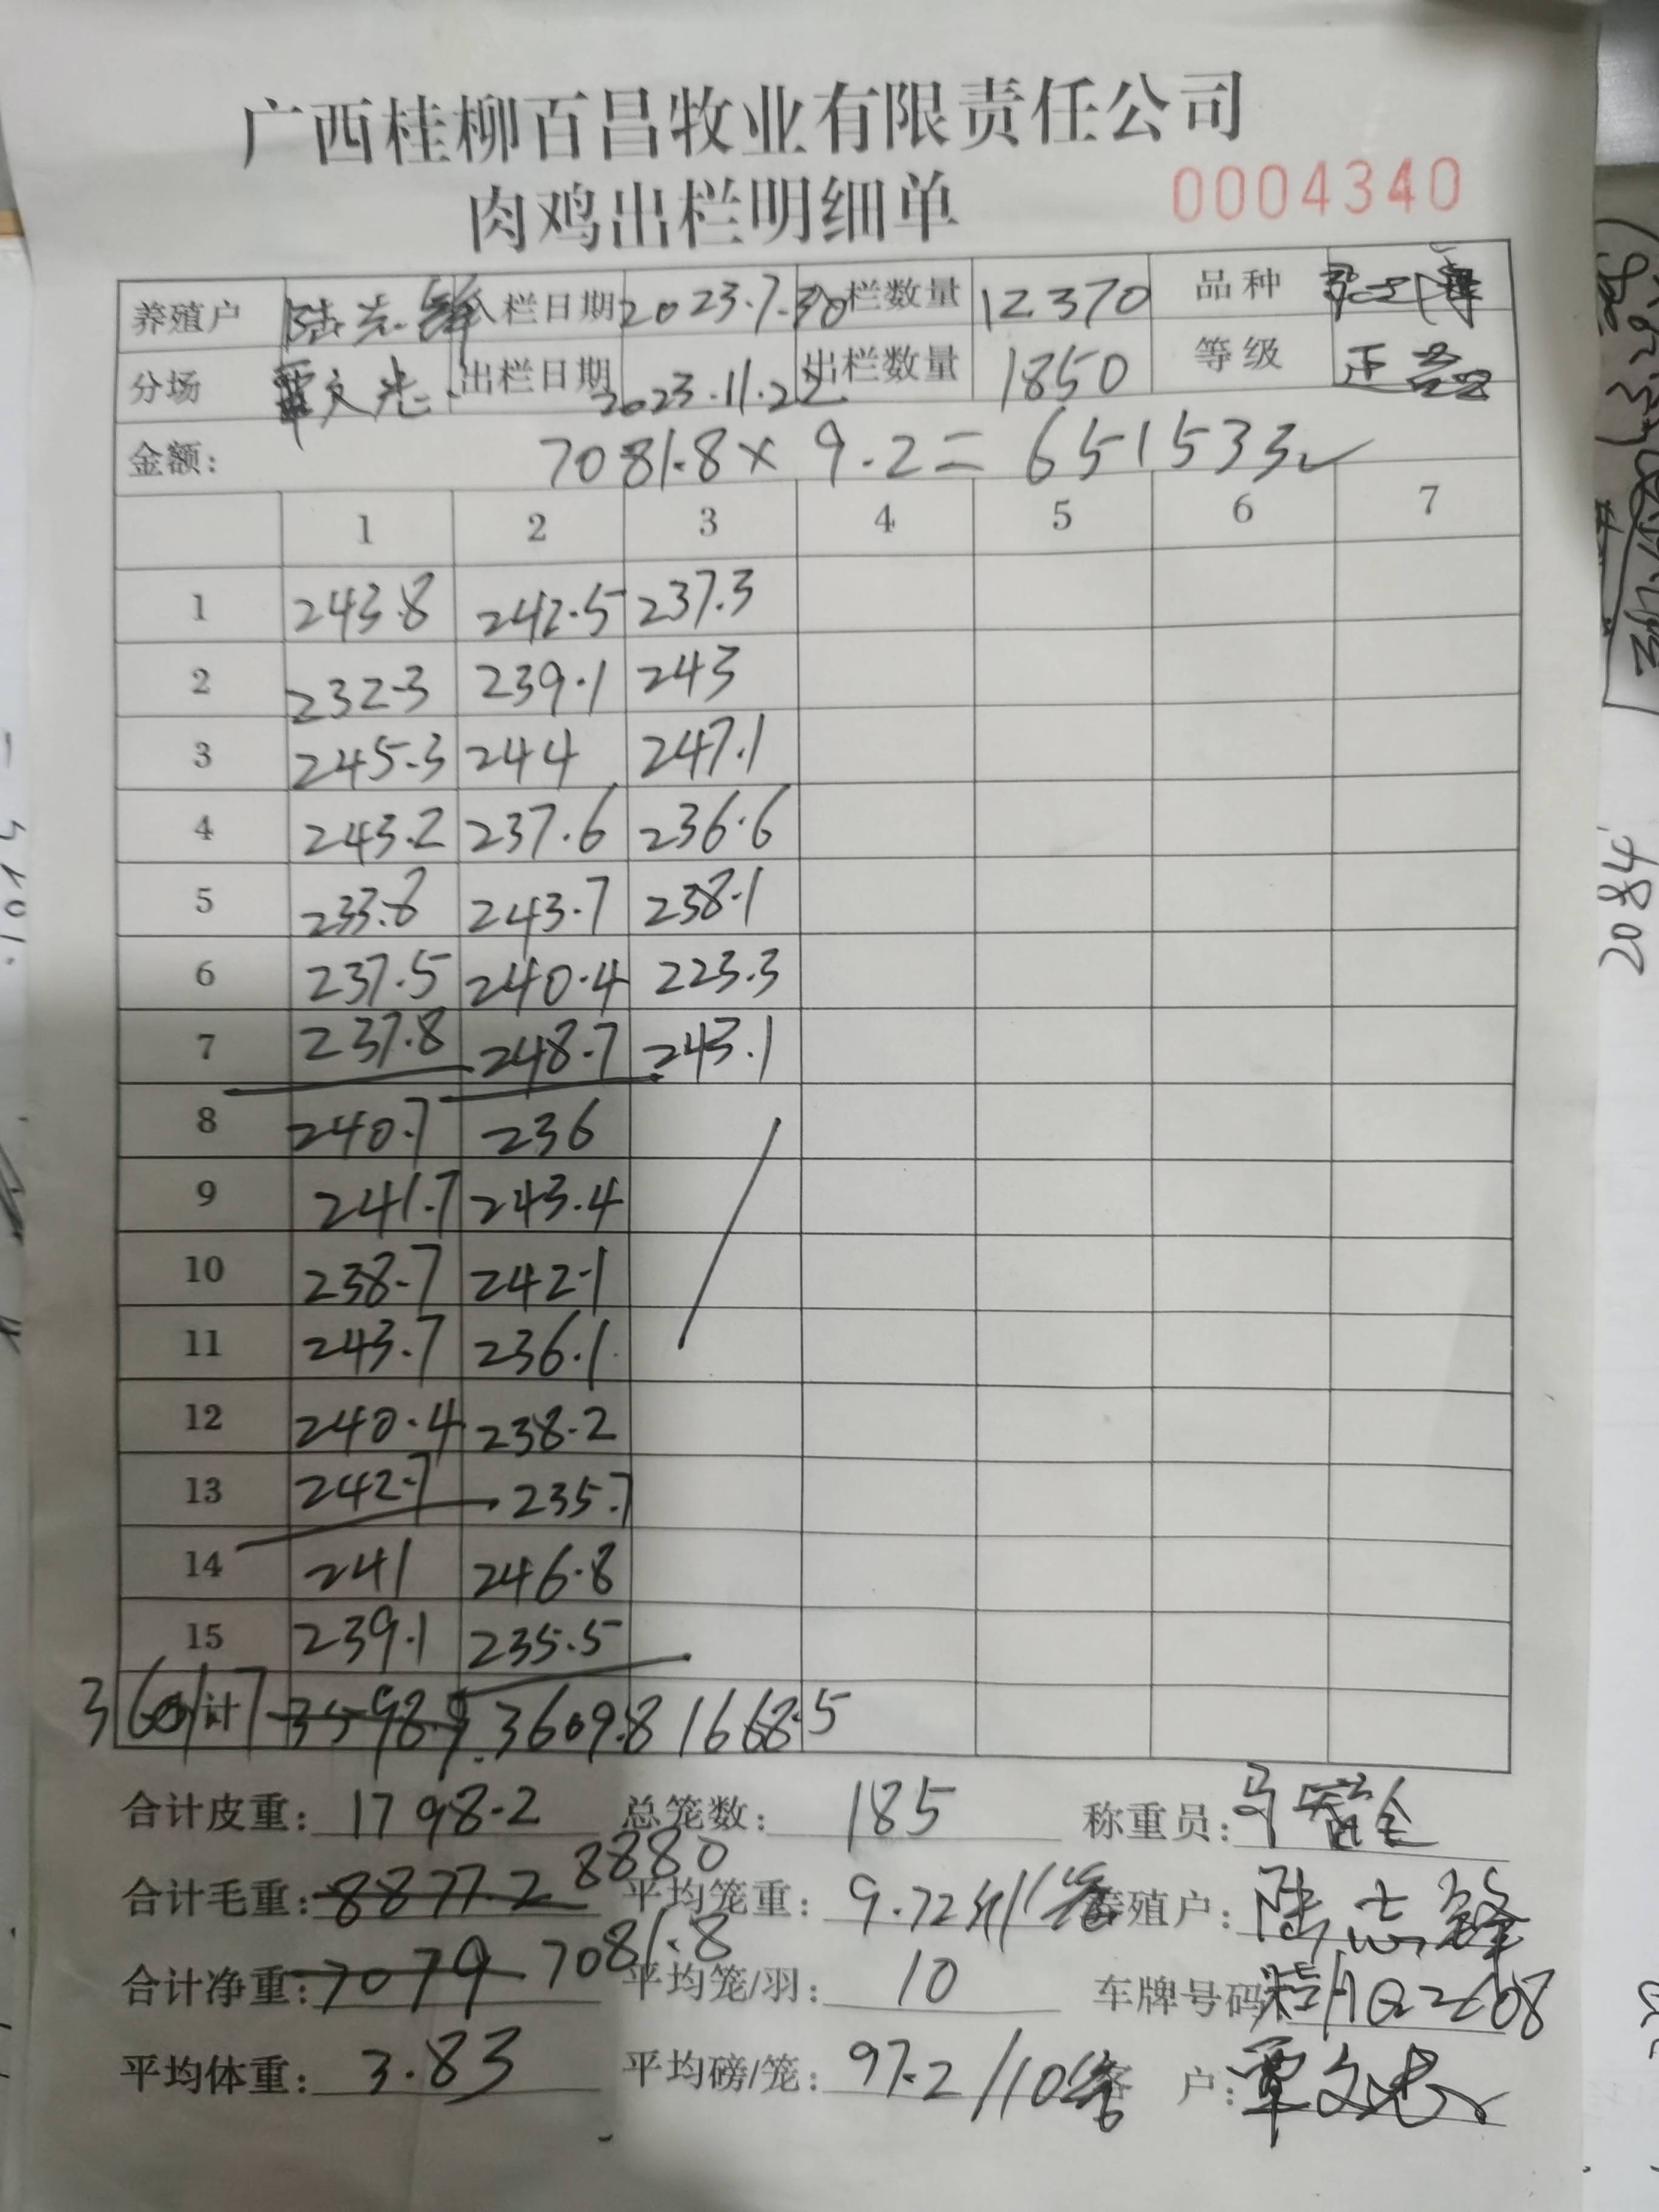 广西桂柳百昌牧业有限责任公司
肉鸡出栏明细单 0004340
养殖户 陆志锋 入栏日期 2023.7.30 入栏数量 12370 品种
分场 覃文忠 出栏日期 2023.11.22 出栏数量 1850 等级 正品
金额: 7081.8×9.2=651533
1 2 3 4 5 6 7
1 243.8 242.5 237.3
2 232.3 239.1 243
3 245.3 244 247.1
4 243.2 237.6 236.6
5 233.8 243.7 238.1
6 237.5 240.4 223.3
7 237.8 248.7 243.1
8 240.7 236
9 241.7 243.4
10 238.7 242.1
11 243.7 236.1
12 240.4 238.2
13 242.7 235.7
14 241 246.8
15 239.1 235.5
合计 3601.7 3598.9 3609.8 1668.5
合计皮重: 1798.2 总笼数: 185 称重员:
合计毛重: 8877.2 8880 平均笼重: 9.72斤/笼 养殖户: 陆志锋
合计净重: 7079 7081.8 平均笼/羽: 10 车牌号码:
平均体重: 3.83 平均磅/笼: 97.2/10笼 客户: 覃文忠
2084